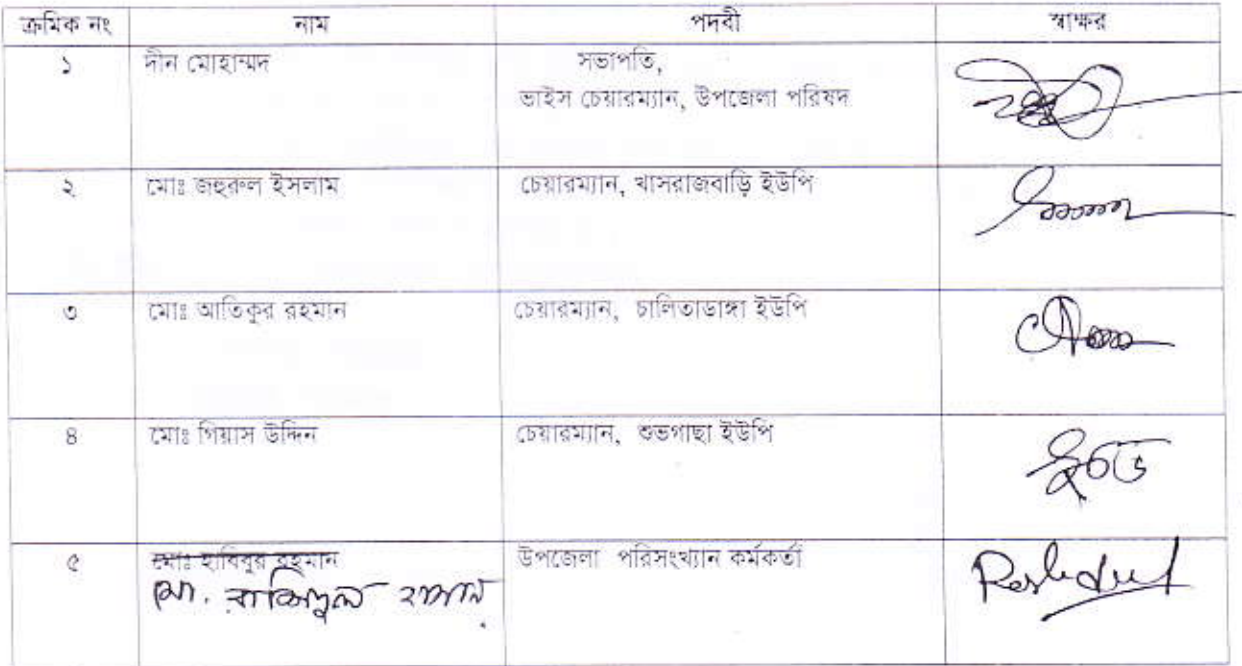 ক্রমিক নং নাম পদবী স্বাক্ষর
১ দীন মোহাম্মদ সভাপতি,
ভাইস চেয়ারম্যান, উপজেলা পরিষদ
২ মোঃ জহুরুল ইসলাম চেয়ারম্যান, খাসরাজবাড়ি ইউপি
৩ মোঃ আতিকুর রহমান চেয়ারম্যান, চালিতাডাঙ্গা ইউপি
৪ মোঃ গিয়াস উদ্দিন চেয়ারম্যান, শুভগাছা ইউপি
৫ মোঃ হাবিবুর রহমান উপজেলা পরিসংখ্যান কর্মকর্তা
মো.